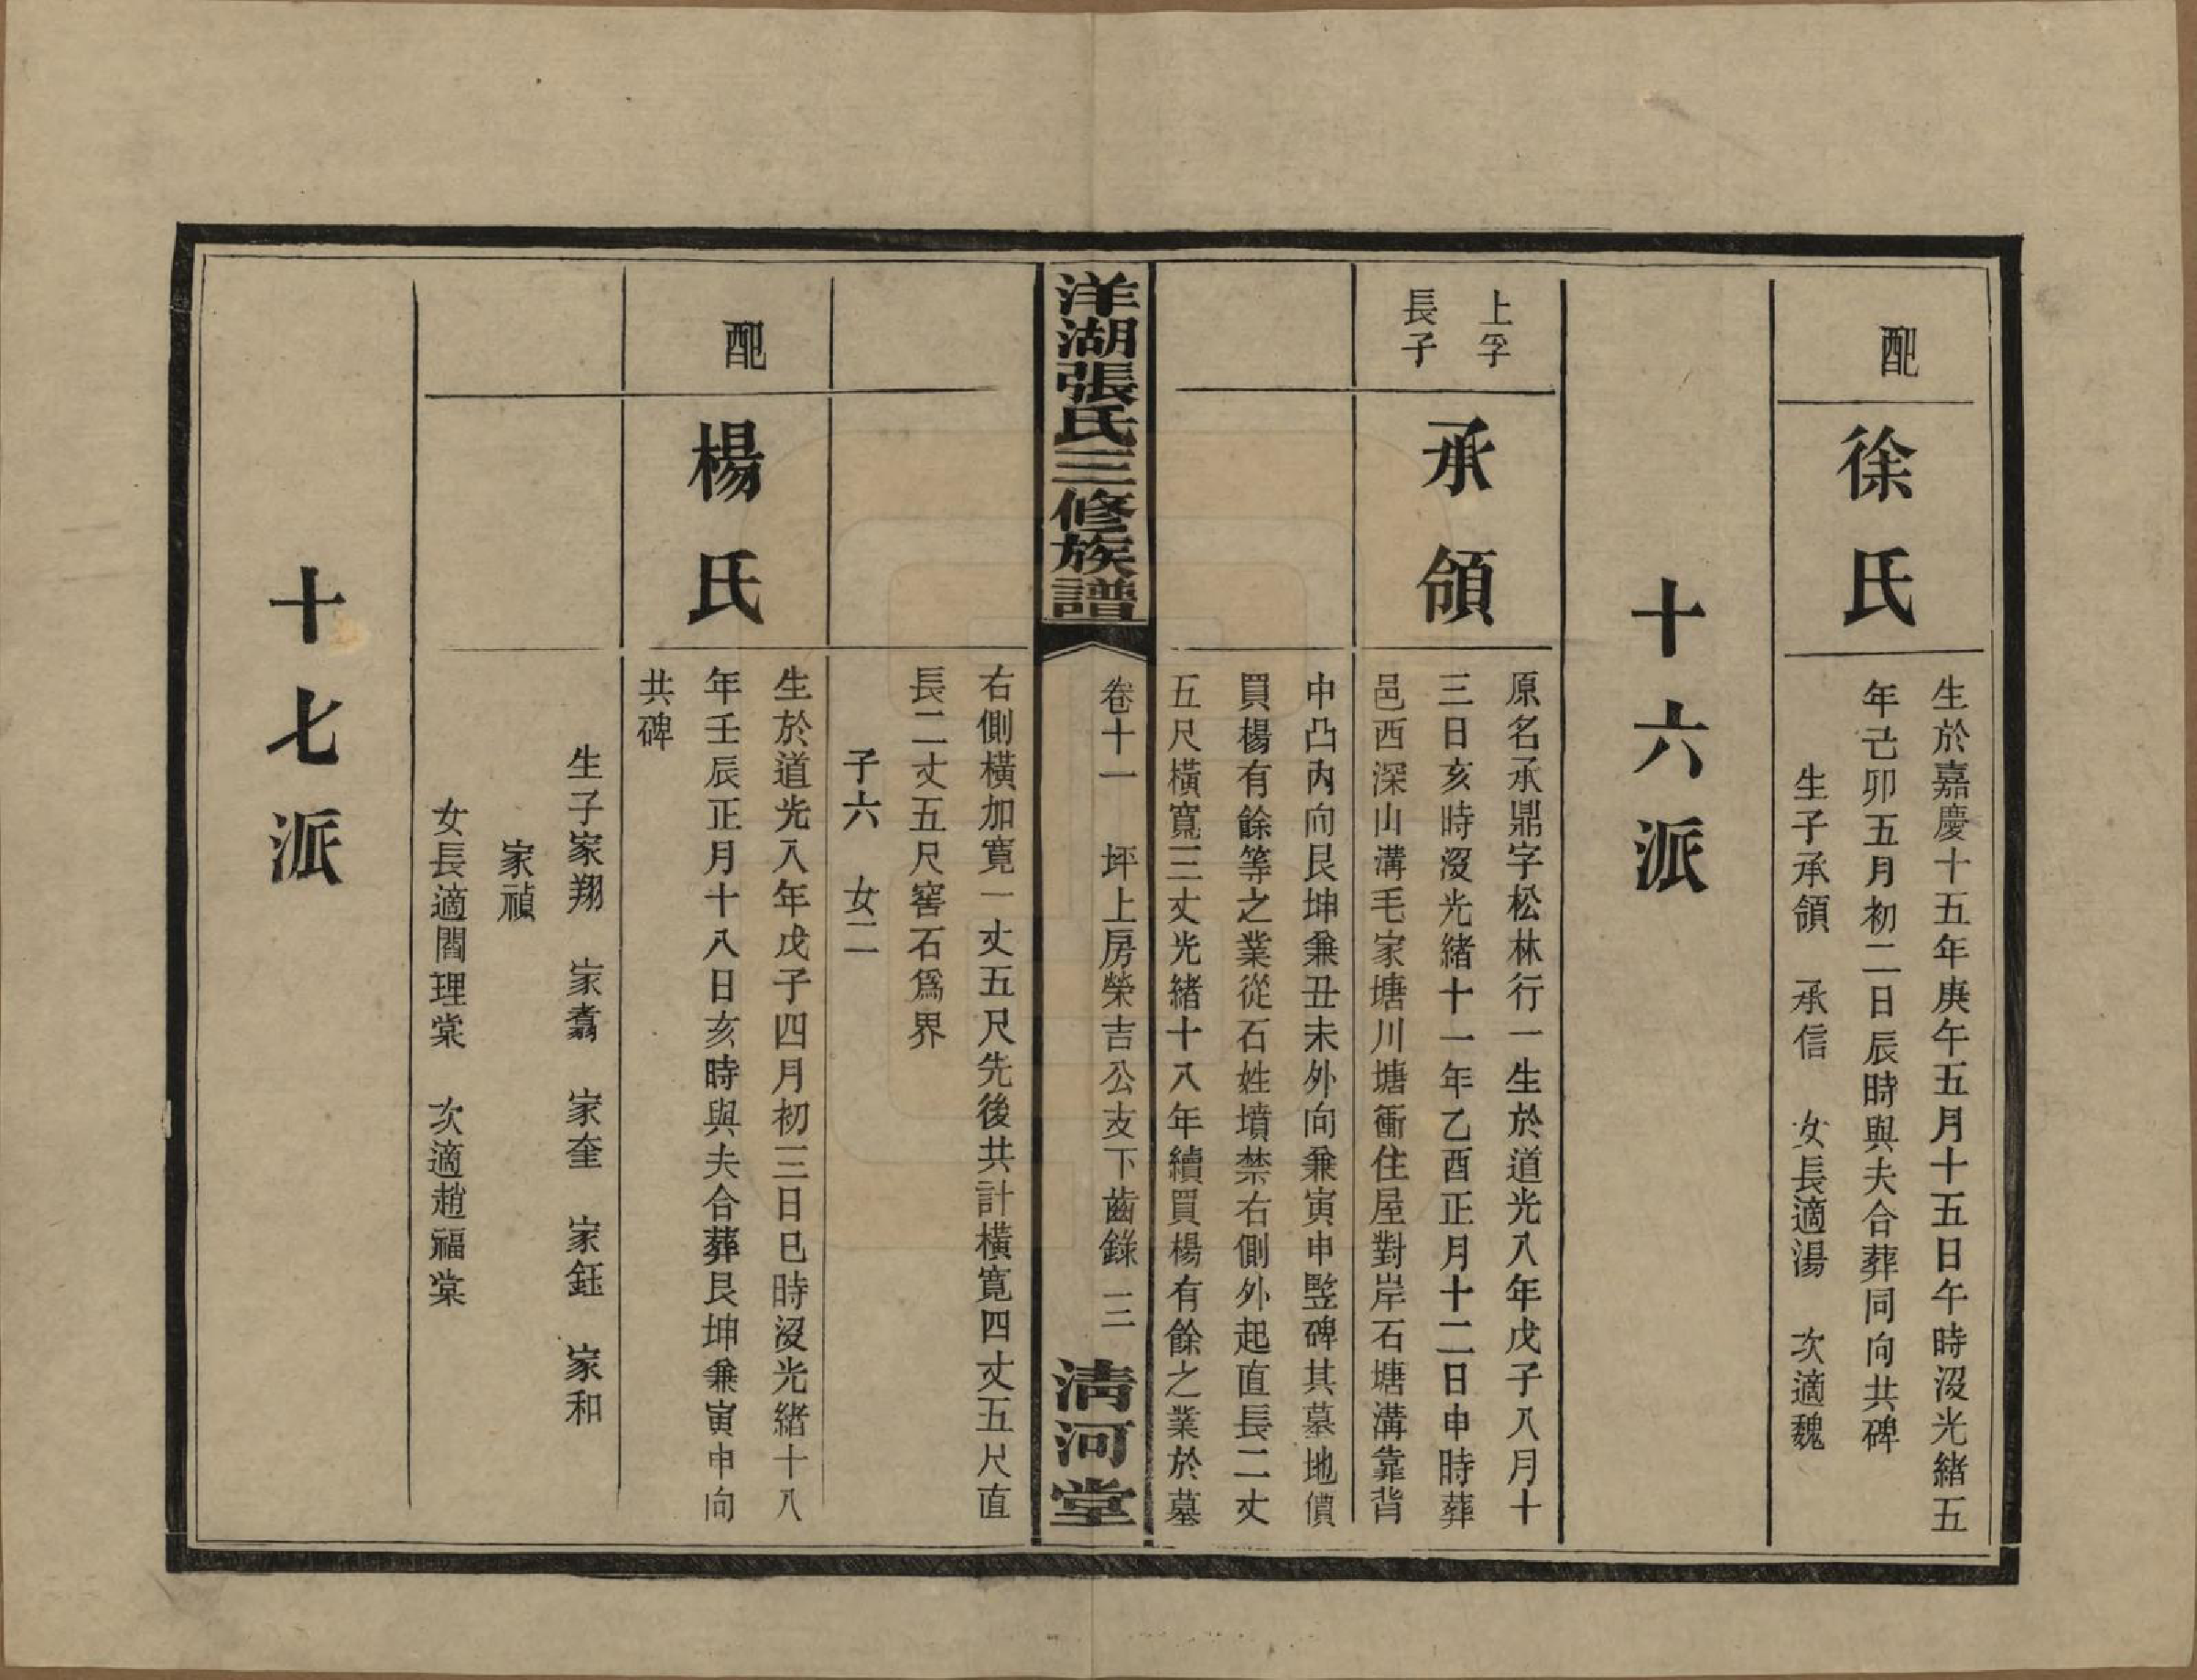 配
徐氏
生於嘉慶十五年庚午五月十五日午時沒光緒五
年己卯五月初二日辰時與夫合葬同向共碑
生子承領　承信　女長適湯　次適魏
十六派
上孚
長子
承領
原名承鼎字松林行一生於道光八年戊子八月十
三日亥時沒光緒十一年乙酉正月十二日申時葬
邑西深山溝毛家塘川塘衝住屋對岸石塘溝靠背
中凸內向艮坤兼丑未外向兼寅申豎碑其墓地價
買楊有餘等之業從石姓墳禁右側外起直長二丈
五尺橫寬三丈光緒十八年續買楊有餘之業於墓
洋湖張氏三修族譜
卷十一　坪上房榮吉公支下齒錄　三
清河堂
右側橫加寬一丈五尺先後共計橫寬四丈五尺直
長二丈五尺窖石爲界
子六　女二
配
楊氏
生於道光八年戊子四月初三日巳時沒光緒十八
年壬辰正月十八日亥時與夫合葬艮坤兼寅申向
共碑
生子家翔　家翥　家奎　家鈺　家和
家禎
女長適閻理棠　次適趙福棠
十七派